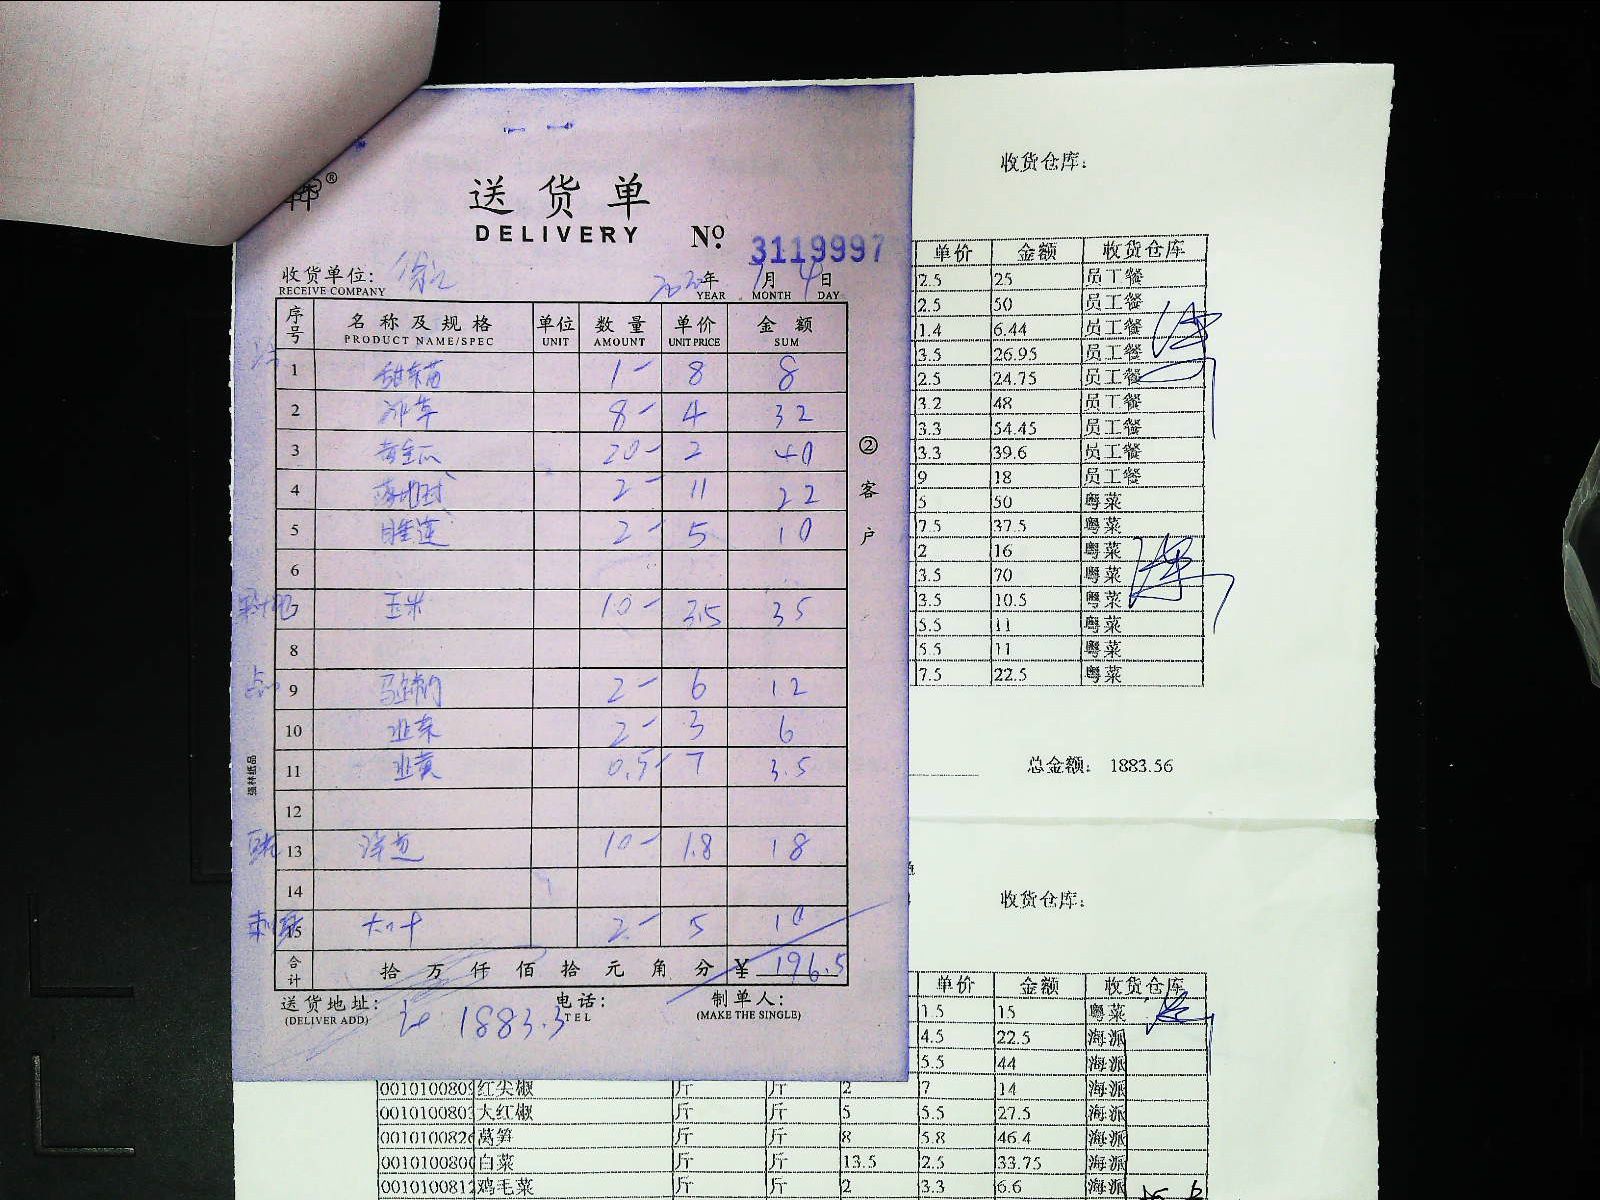 送货单
DELIVERY
№ 3119997
收货单位:
RECEIVE COMPANY
年 1月 4日
YEAR MONTH DAY
序号 名称及规格 单位 数量 单价 金额
PRODUCT NAME/SPEC UNIT AMOUNT UNIT PRICE SUM
1 甜豆苗 1- 8 8
2 8- 4 32
3 黄金瓜 20- 2 40
4 2- 11 22
5 睡莲 2- 5 10
6
玉米 10- 3.5 35
8
9 2- 6 12
10 韭菜 2- 3 6
11 韭黄 0.5- 7 3.5
12
13 洋葱 10- 1.8 18
14
15 大叶 2- 5 10
合计 拾万仟佰拾元角分 ¥ 196.5
送货地址: 电话: 制单人:
(DELIVER ADD) TEL (MAKE THE SINGLE)
1883.5
②客户
强林纸品
收货仓库:
单价 金额 收货仓库
2.5 25 员工餐
2.5 50 员工餐
1.4 6.44 员工餐
3.5 26.95 员工餐
2.5 24.75 员工餐
3.2 48 员工餐
3.3 54.45 员工餐
3.3 39.6 员工餐
9 18 员工餐
5 50 粤菜
7.5 37.5 粤菜
2 16 粤菜
3.5 70 粤菜
3.5 10.5 粤菜
5.5 11 粤菜
5.5 11 粤菜
7.5 22.5 粤菜
总金额: 1883.56
收货仓库:
单价 金额 收货仓库
1.5 15 粤菜
4.5 22.5 海派
5.5 44 海派
红尖椒 斤 斤 2 7 14 海派
大红椒 斤 斤 5 5.5 27.5 海派
莴笋 斤 斤 8 5.8 46.4 海派
白菜 斤 斤 13.5 2.5 33.75 海派
鸡毛菜 斤 斤 2 3.3 6.6 海派